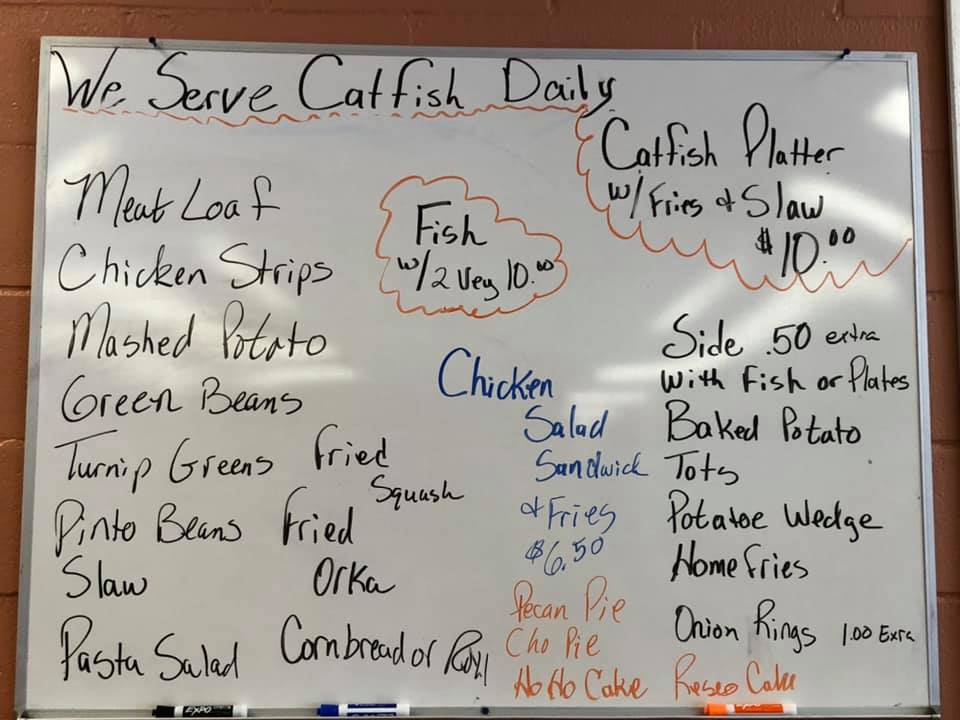 We Serve Catfish Daily
Catfish Platter
w/ Fries & Slaw
$10.00
Fish
w/2 Veg 10.00
Meat Loaf
Chicken Strips
Mashed Potato
Green Beans
Turnip Greens
Pinto Beans
Slaw
Pasta Salad
Fried
Squash
Fried
Orka
Cornbread or
Chicken
Salad
Sandwick
& Fries
$6.50
Pecan Pie
Cho Pie
Ho Ho Cake
Reseo Cake
Side .50 extra
With Fish or Plates
Baked Potato
Tots
Potatoe Wedge
Home Fries
Onion Rings 1.00 Extra
EXPO